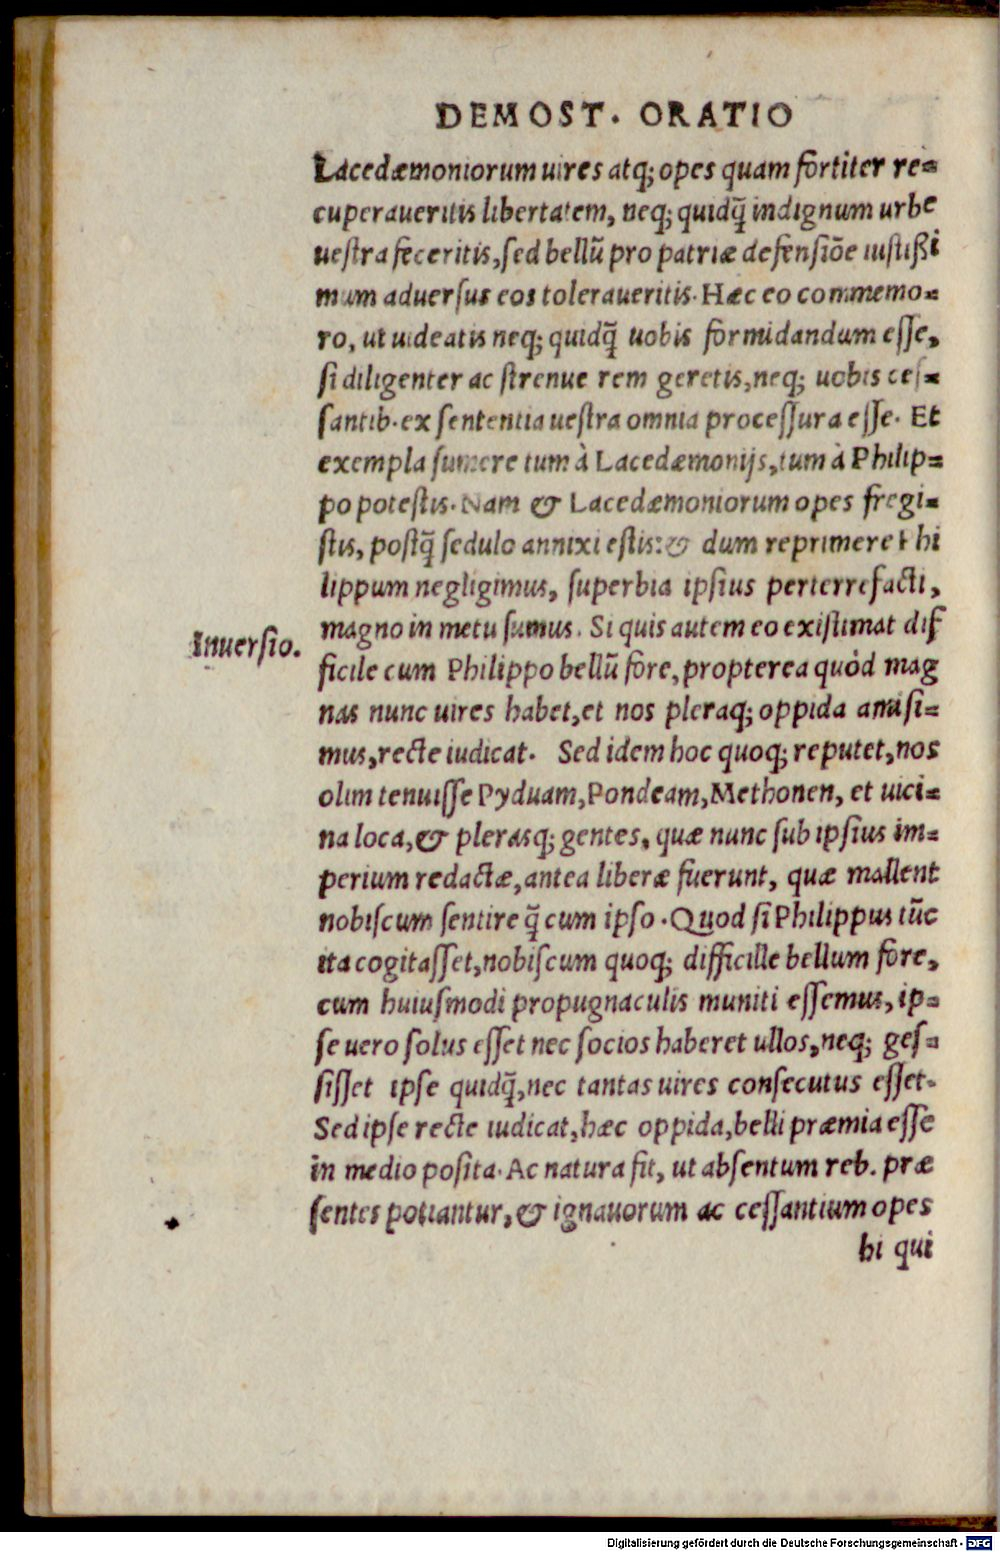 DEMOST. ORATIO
Lacedæmoniorum uires atq; opes quam fortiter re=
cuperaueritis libertatem, neq; quidq̃ indignum urbe
uestra feceritis, sed bellũ pro patriæ defensiõe iustißi
mum aduersus eos toleraueritis. Hæc eo commemo=
ro, ut uideatis neq; quidq̃ uobis formidandum esse,
si diligenter ac strenue rem geretis, neq; uobis ces=
santib. ex sententia uestra omnia processura esse. Et
exempla sumere tum à Lacedæmonijs, tum à Philip=
po potestis. Nam & Lacedæmoniorum opes fregi=
stis, postq̃ sedulo annixi estis: & dum reprimere Phi
lippum negligimus, superbia ipsius perterrefacti,
magno in metu sumus. Si quis autem eo existimat dif
Inuersio.
ficile cum Philippo bellũ fore, propterea quòd mag
nas nunc uires habet, et nos pleraq; oppida amisi=
mus, recte iudicat. Sed idem hoc quoq; reputet, nos
olim tenuisse Pyduam, Pondeam, Methonen, et uici=
na loca, & plerasq; gentes, quæ nunc sub ipsius im=
perium redactæ, antea liberæ fuerunt, quæ mallent
nobiscum sentire q̃ cum ipso. Quod si Philippus tũc
ita cogitasset, nobiscum quoq; difficille bellum fore,
cum huiusmodi propugnaculis muniti essemus, ip=
se uero solus esset nec socios haberet ullos, neq; ges=
sisset ipse quidq̃, nec tantas uires consecutus esset.
Sed ipse recte iudicat, hæc oppida, belli præmia esse
in medio posita. Ac natura fit, ut absentum reb. præ
sentes potiantur, & ignauorum ac cessantium opes
hi qui
Digitalisierung gefördert durch die Deutsche Forschungsgemeinschaft - DFG